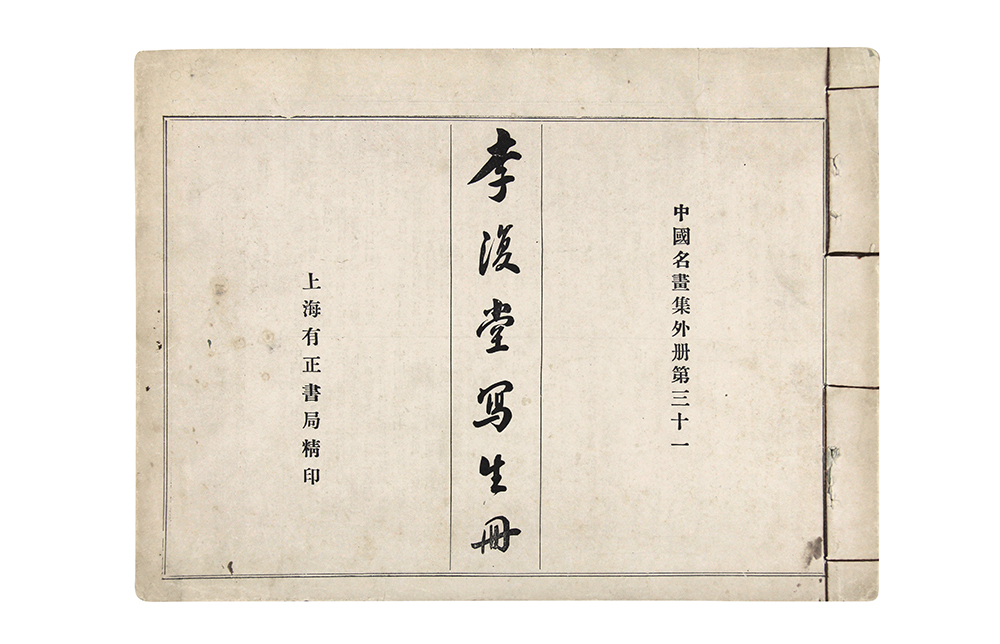 中國名畫集外册第三十一
李復堂寫生冊
上海有正書局精印